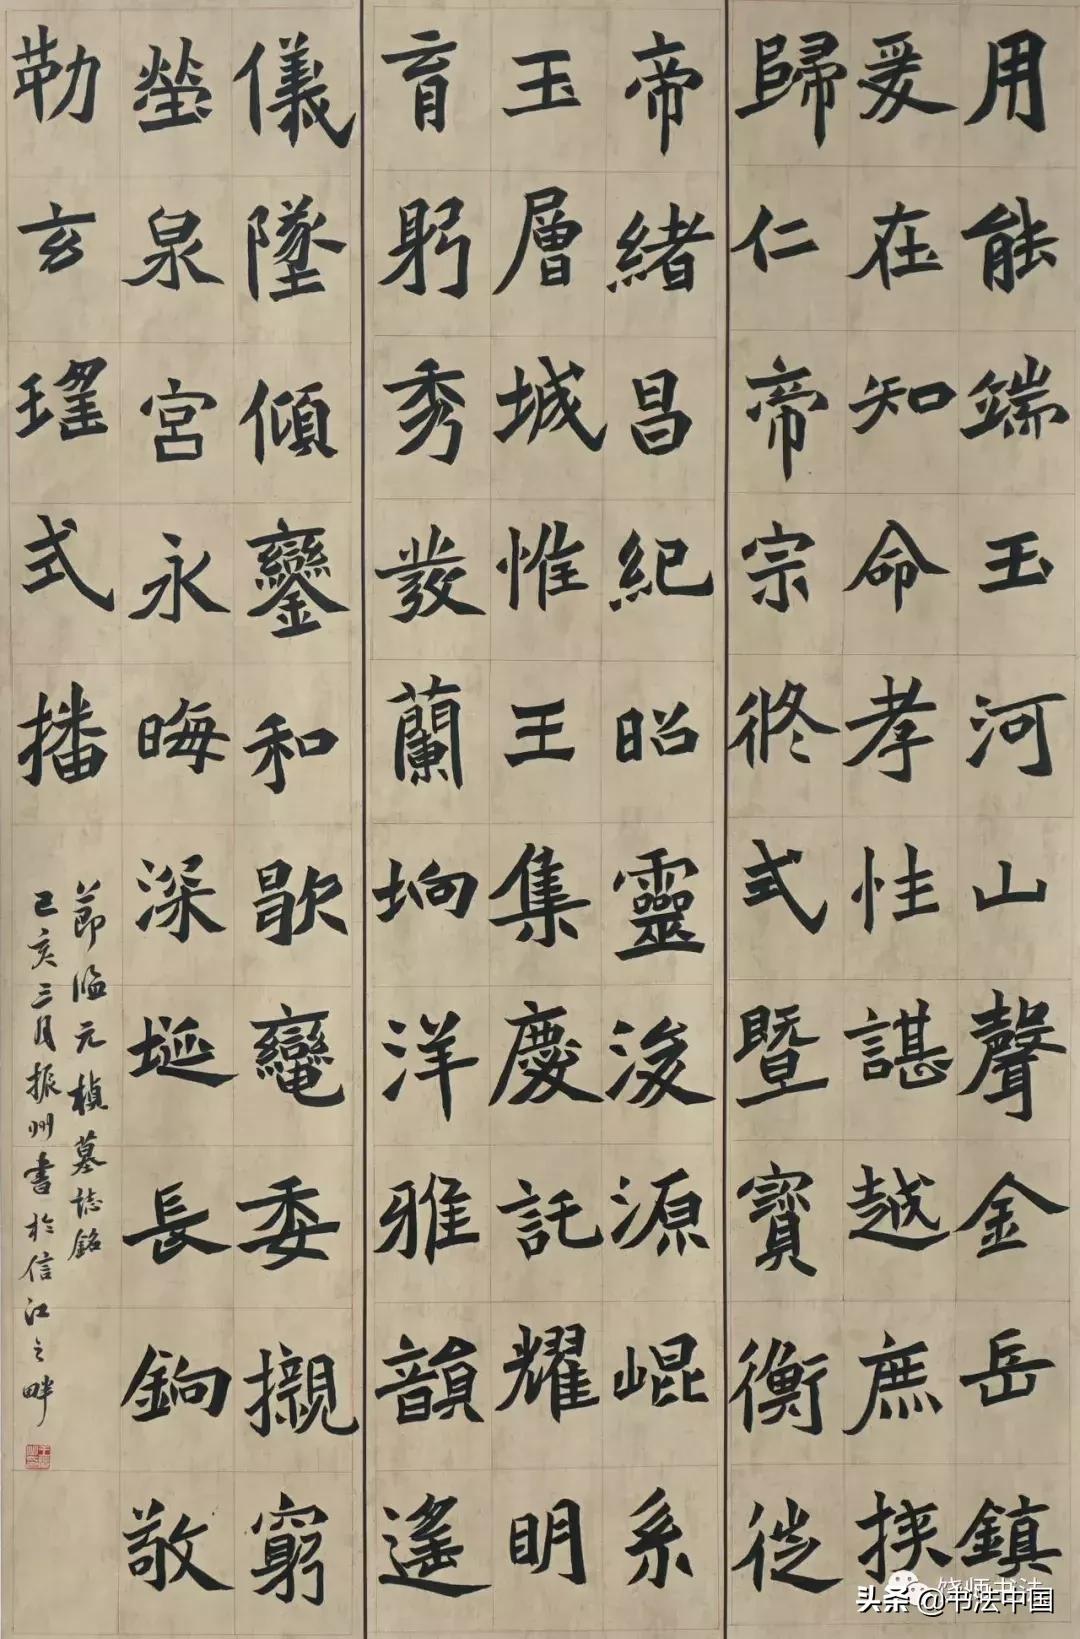 用能端玉河山聲金岳鎮
爰在知命孝性諶越庶挟
歸仁帝宗終式暨寳衡徙
帝緒昌紀昭靈浚源崐系
玉層城惟王集慶託耀明
育躬秀發蘭坰洋雅韻遙
儀墜傾鑾和歇委櫬窮
塋泉宮永晦深埏長銄敬
勒玄瑤式播
節臨元楨墓誌銘
己亥三月振州書於信江之畔
饶师书法
头条 @书法中国